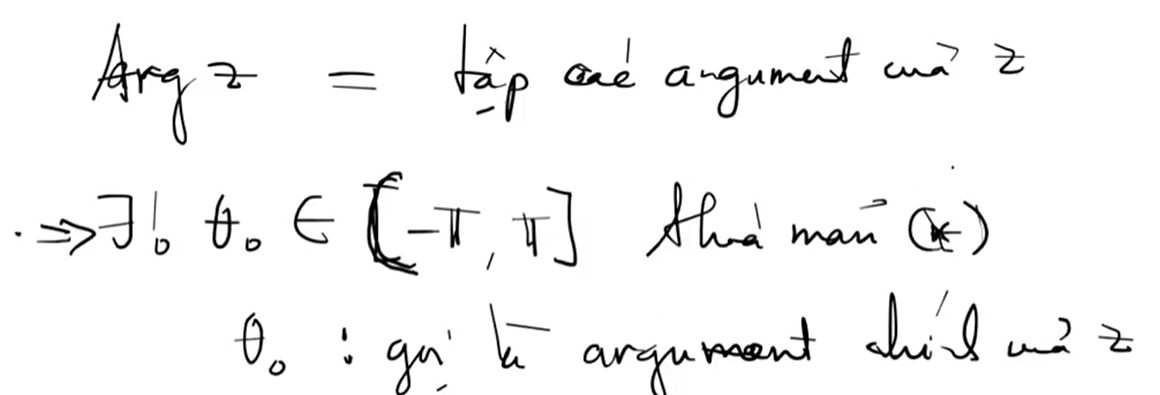 Arg z = tập các argument của z
⇒ ∃! θ₀ ∈ (-π, π] thoả mãn (*)
θ₀ : gọi là argument chính của z